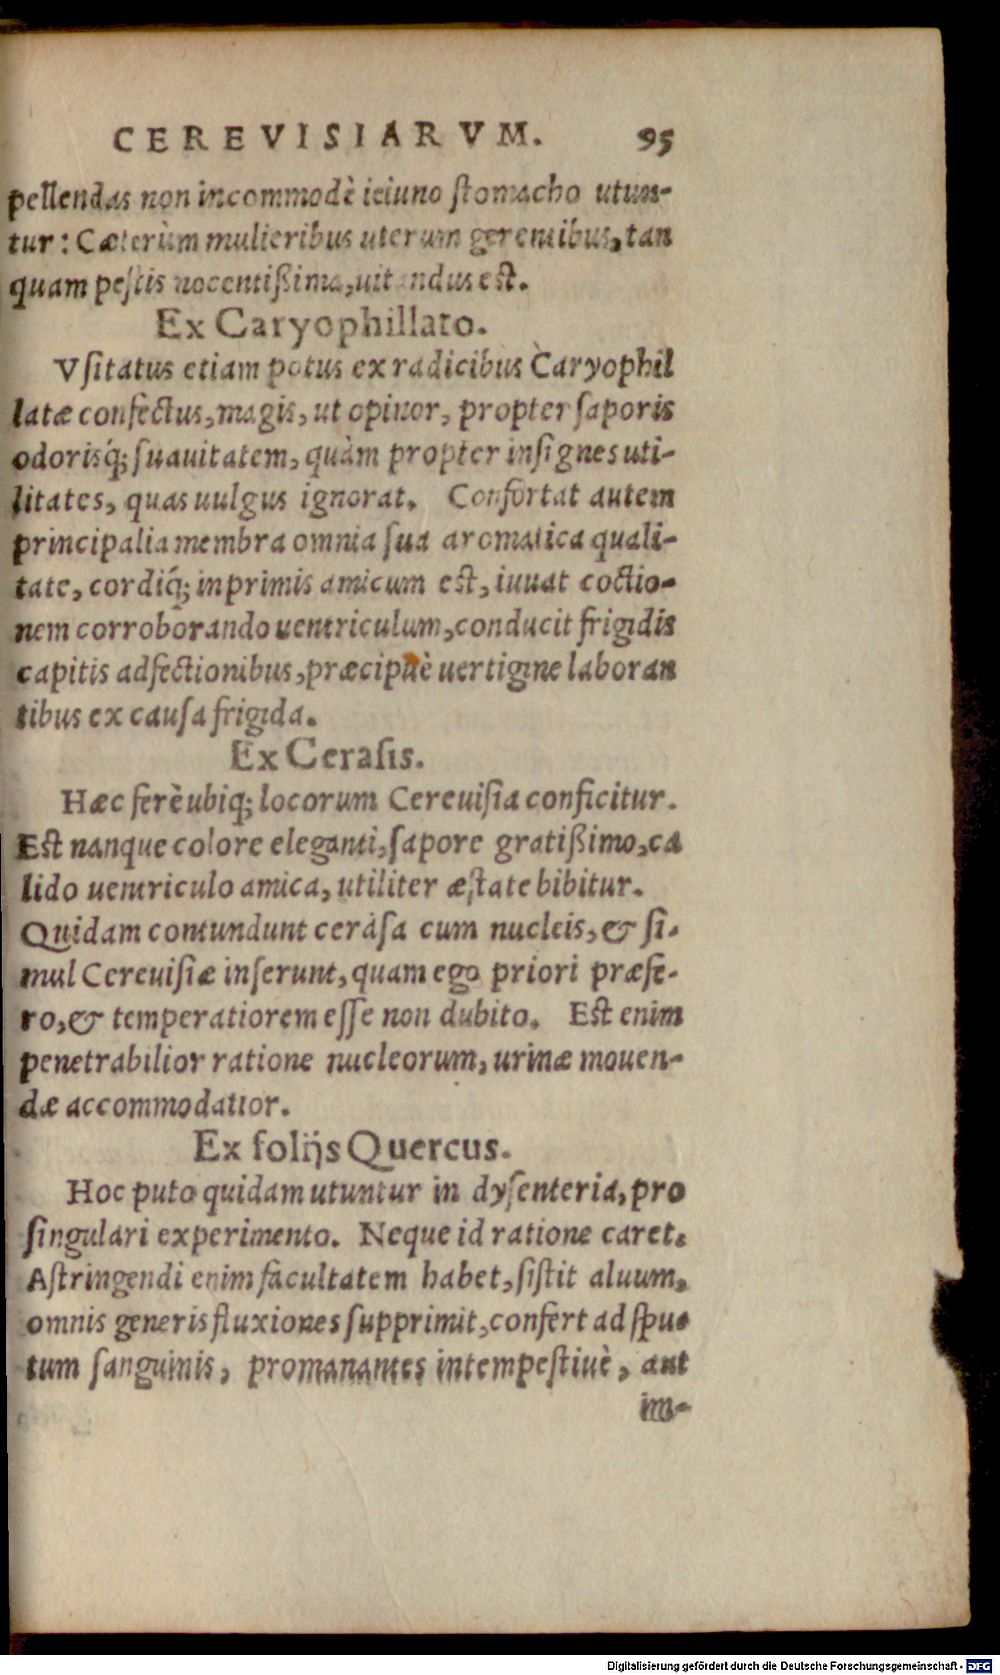 CEREVISIARVM. 95
pellendas non incommodè ieiuno ſtomacho utun-
tur: Cæterùm mulieribus uterum gerentibus, tan
quam peſtis nocentißima, uitandus eſt.
Ex Caryophillato.
Vſitatus etiam potus ex radicibus Caryophil
latæ confectus, magis, ut opinor, propter ſaporis
odorisq́; ſuauitatem, quàm propter inſignes uti-
litates, quas uulgus ignorat. Confortat autem
principalia membra omnia ſua aromatica quali-
tate, cordiq́; inprimis amicum eſt, iuuat coctio-
nem corroborando uentriculum, conducit frigidis
capitis adfectionibus, præcipuè uertigine laboran
tibus ex cauſa frigida.
Ex Ceraſis.
Hæc ferè ubiq; locorum Cereuiſia conficitur.
Eſt nanque colore eleganti, ſapore gratißimo, ca
lido uentriculo amica, utiliter æſtate bibitur.
Quidam contundunt ceraſa cum nucleis, & ſi-
mul Cereuiſiæ inſerunt, quam ego priori præfe-
ro, & temperatiorem eſſe non dubito. Eſt enim
penetrabilior ratione nucleorum, urinæ mouen-
dæ accommodatior.
Ex folijs Quercus.
Hoc puto quidam utuntur in dyſenteria, pro
ſingulari experimento. Neque id ratione caret.
Aſtringendi enim facultatem habet, ſiſtit aluum,
omnis generis fluxiones ſupprimit, confert ad ſpu-
tum ſanguinis, promanantes intempeſtiuè, aut
im-
Digitalisierung gefördert durch die Deutsche Forschungsgemeinschaft - DFG